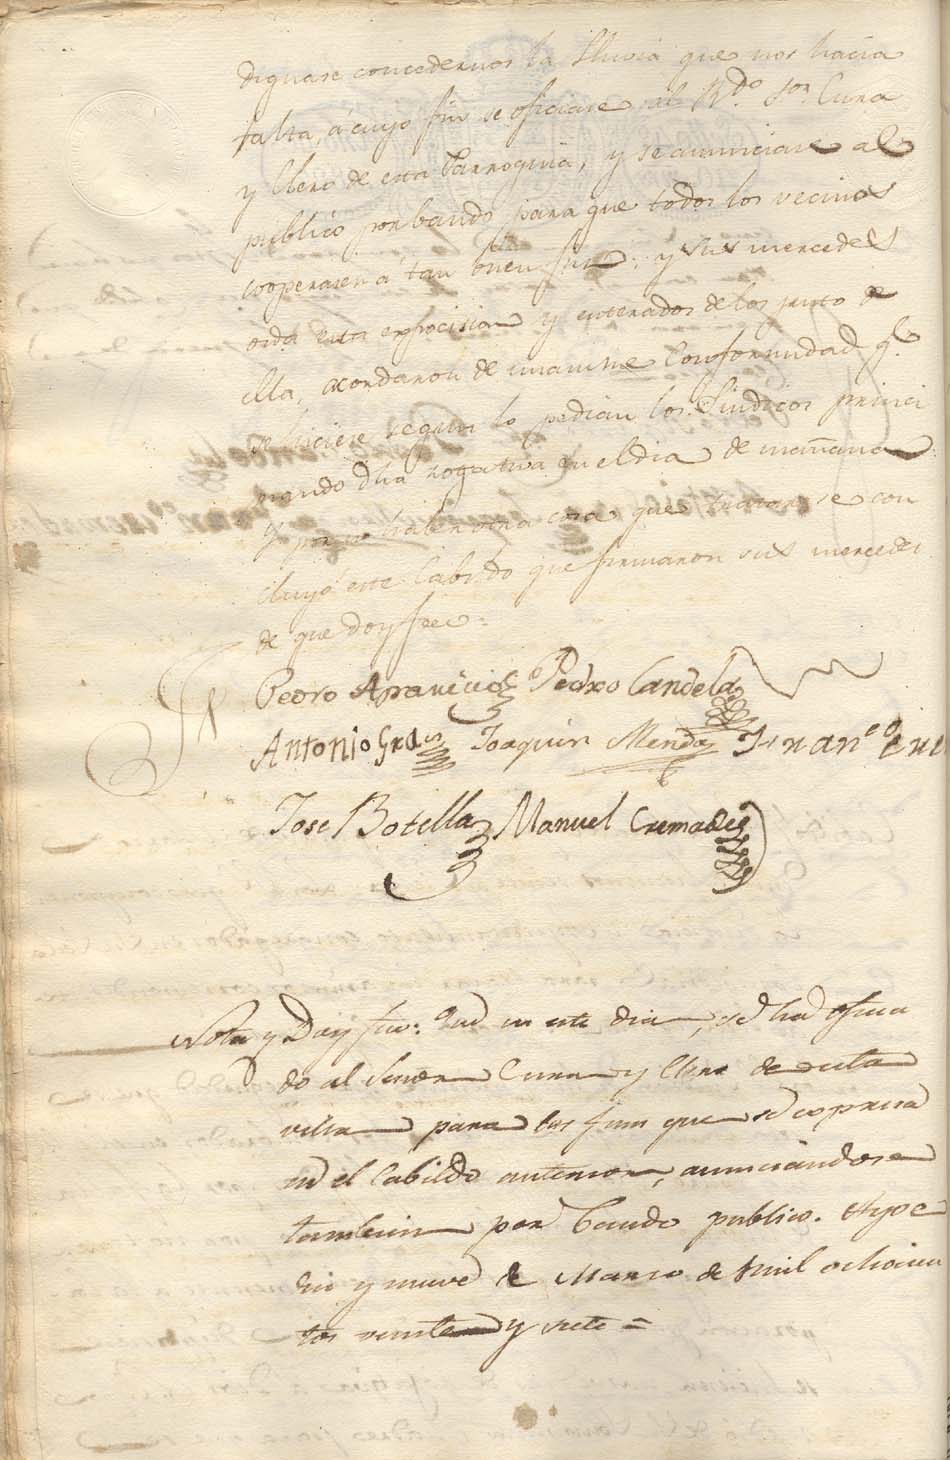 dignase concedernos la lluvia que nos hacia
falta, á cuyo fin se oficiase al R.do S.or Cura
y Clero de esta Parroquia, y se anunciase al
publico por bando para que todos los vecinos
cooperasen á tan buen fin: y sus mercedes
oida esta exposicion y enterados de los justo de
ella, acordaron de unanime conformidad q.e
se hiciese segun lo pedian los Sindicos princi
piando dha rogativa en el dia de mañana:
Y por no haber otra cosa que tratar se con
cluyó este Cabildo que firmaron sus mercedes
de que doy fee:
Pedro Aparicio Pedro Candela
Antonio Joaquin Fran.co
Jose Botella Manuel Cremades
Nota y Doy fee: Que en este dia, se ha oficia
do al Señor Cura y Clero de esta
villa para los fines que se expresa
en el Cabildo anterior, anunciandose
tambien por bando publico. Aspe
diez y nueve de Marzo de mil ochocien
tos veinte y siete =